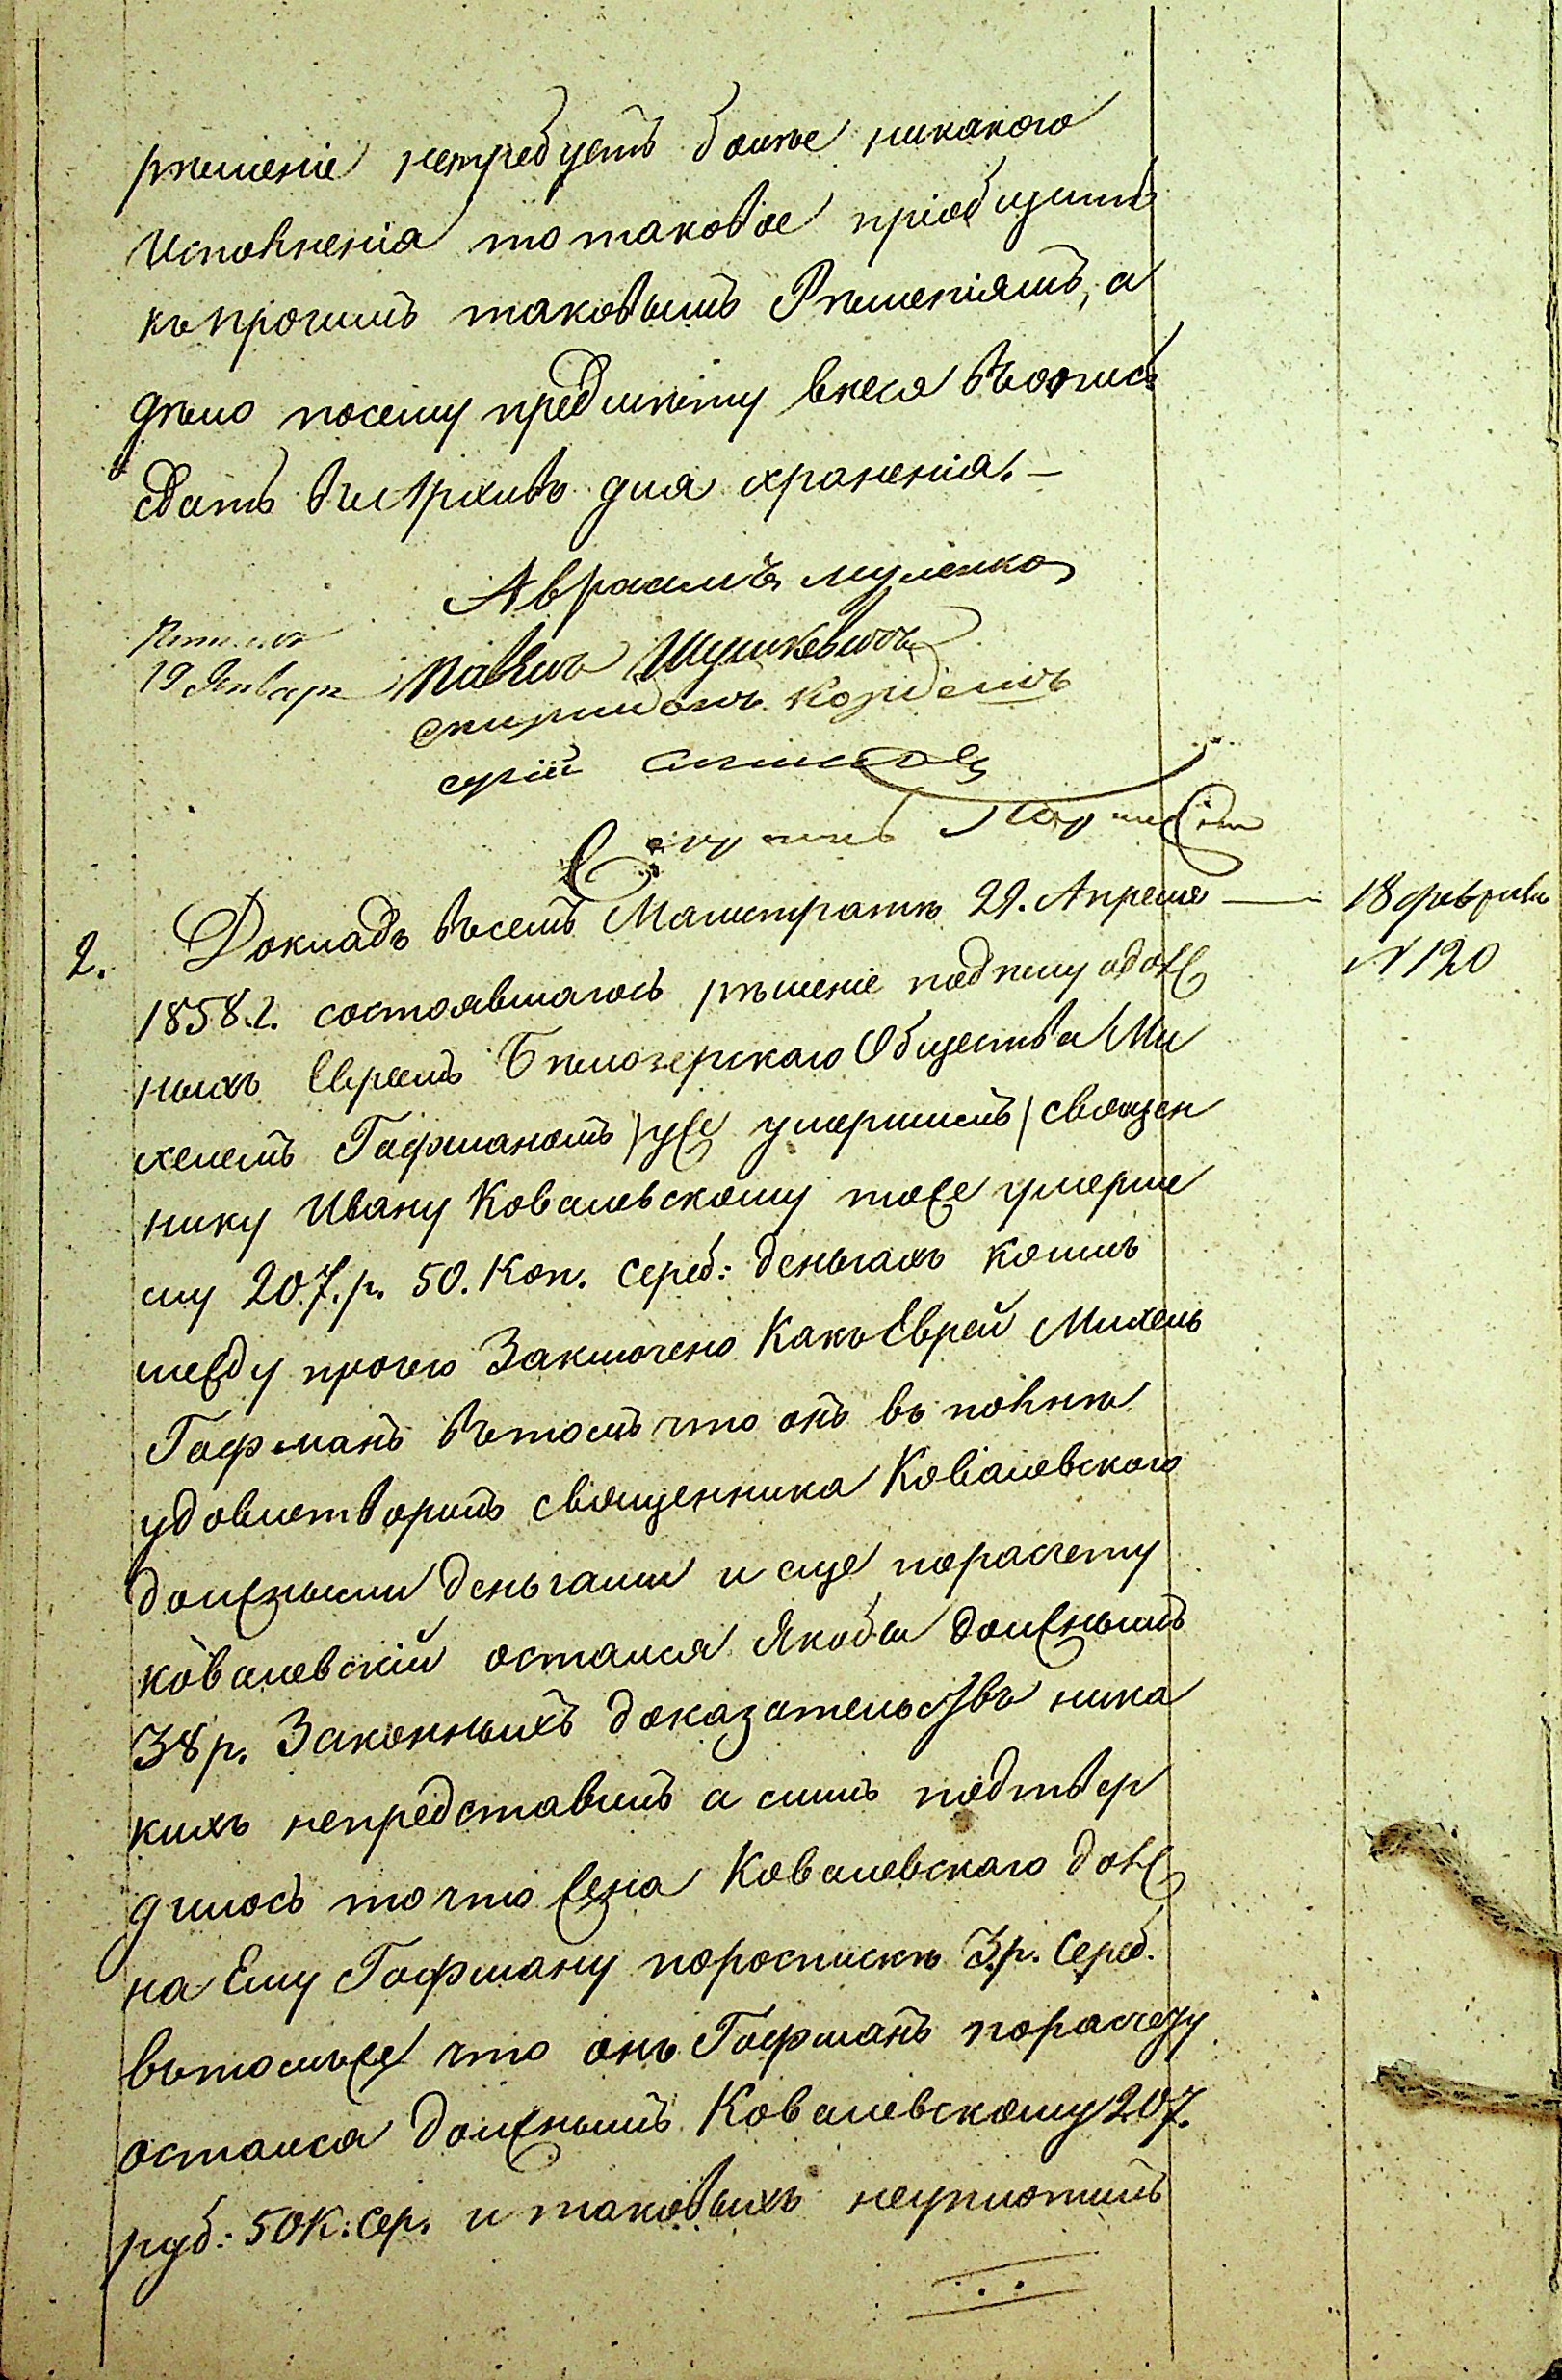 рѣшеніе нетребуетъ болѣе никакого
исполненія то таковое пріобщить
къ прочимъ таковымъ Рѣшеніямъ, а
дѣло посему предмѣту внеся въопись
сдать въ Архивъ для храненія. –
Авраамъ
19 Января Павелъ
Спиридонъ
2. Докладъ въсемъ Магистратѣ 29. Апреля — 18 февраля
1858.г. состоявшагось рѣшеніе подѣлу одолж № 120
ныхъ Евреемъ Бѣлозерскаго Общества Ми
хелемъ Гофманомъ /уже умершимъ/ священ
нику Ивану Ковалевскому тоже умерше
му 207.р. 50. Коп. Сереб: деньгахъ коимъ
между прочего Заключено Какъ Еврей Михель
Гофманъ вътомъ что онъ въ полнѣ
удовлетворилъ священника Ковалевского
должными деньгами и еще порасчету
Ковалевскій остался якобы должнымъ
38р. Законныхъ доказательствъ ника
кихъ непредставилъ а симъ подтвер
дилось то что жена Ковалевскаго долж
на Ему Гофману поросписки 3.р. Сереб.
вътомъже что онъ Гофманъ порасчету
остался должнымъ Ковалевскому 207.
руб: 50к: Сер. и таковыхъ неуплотилъ